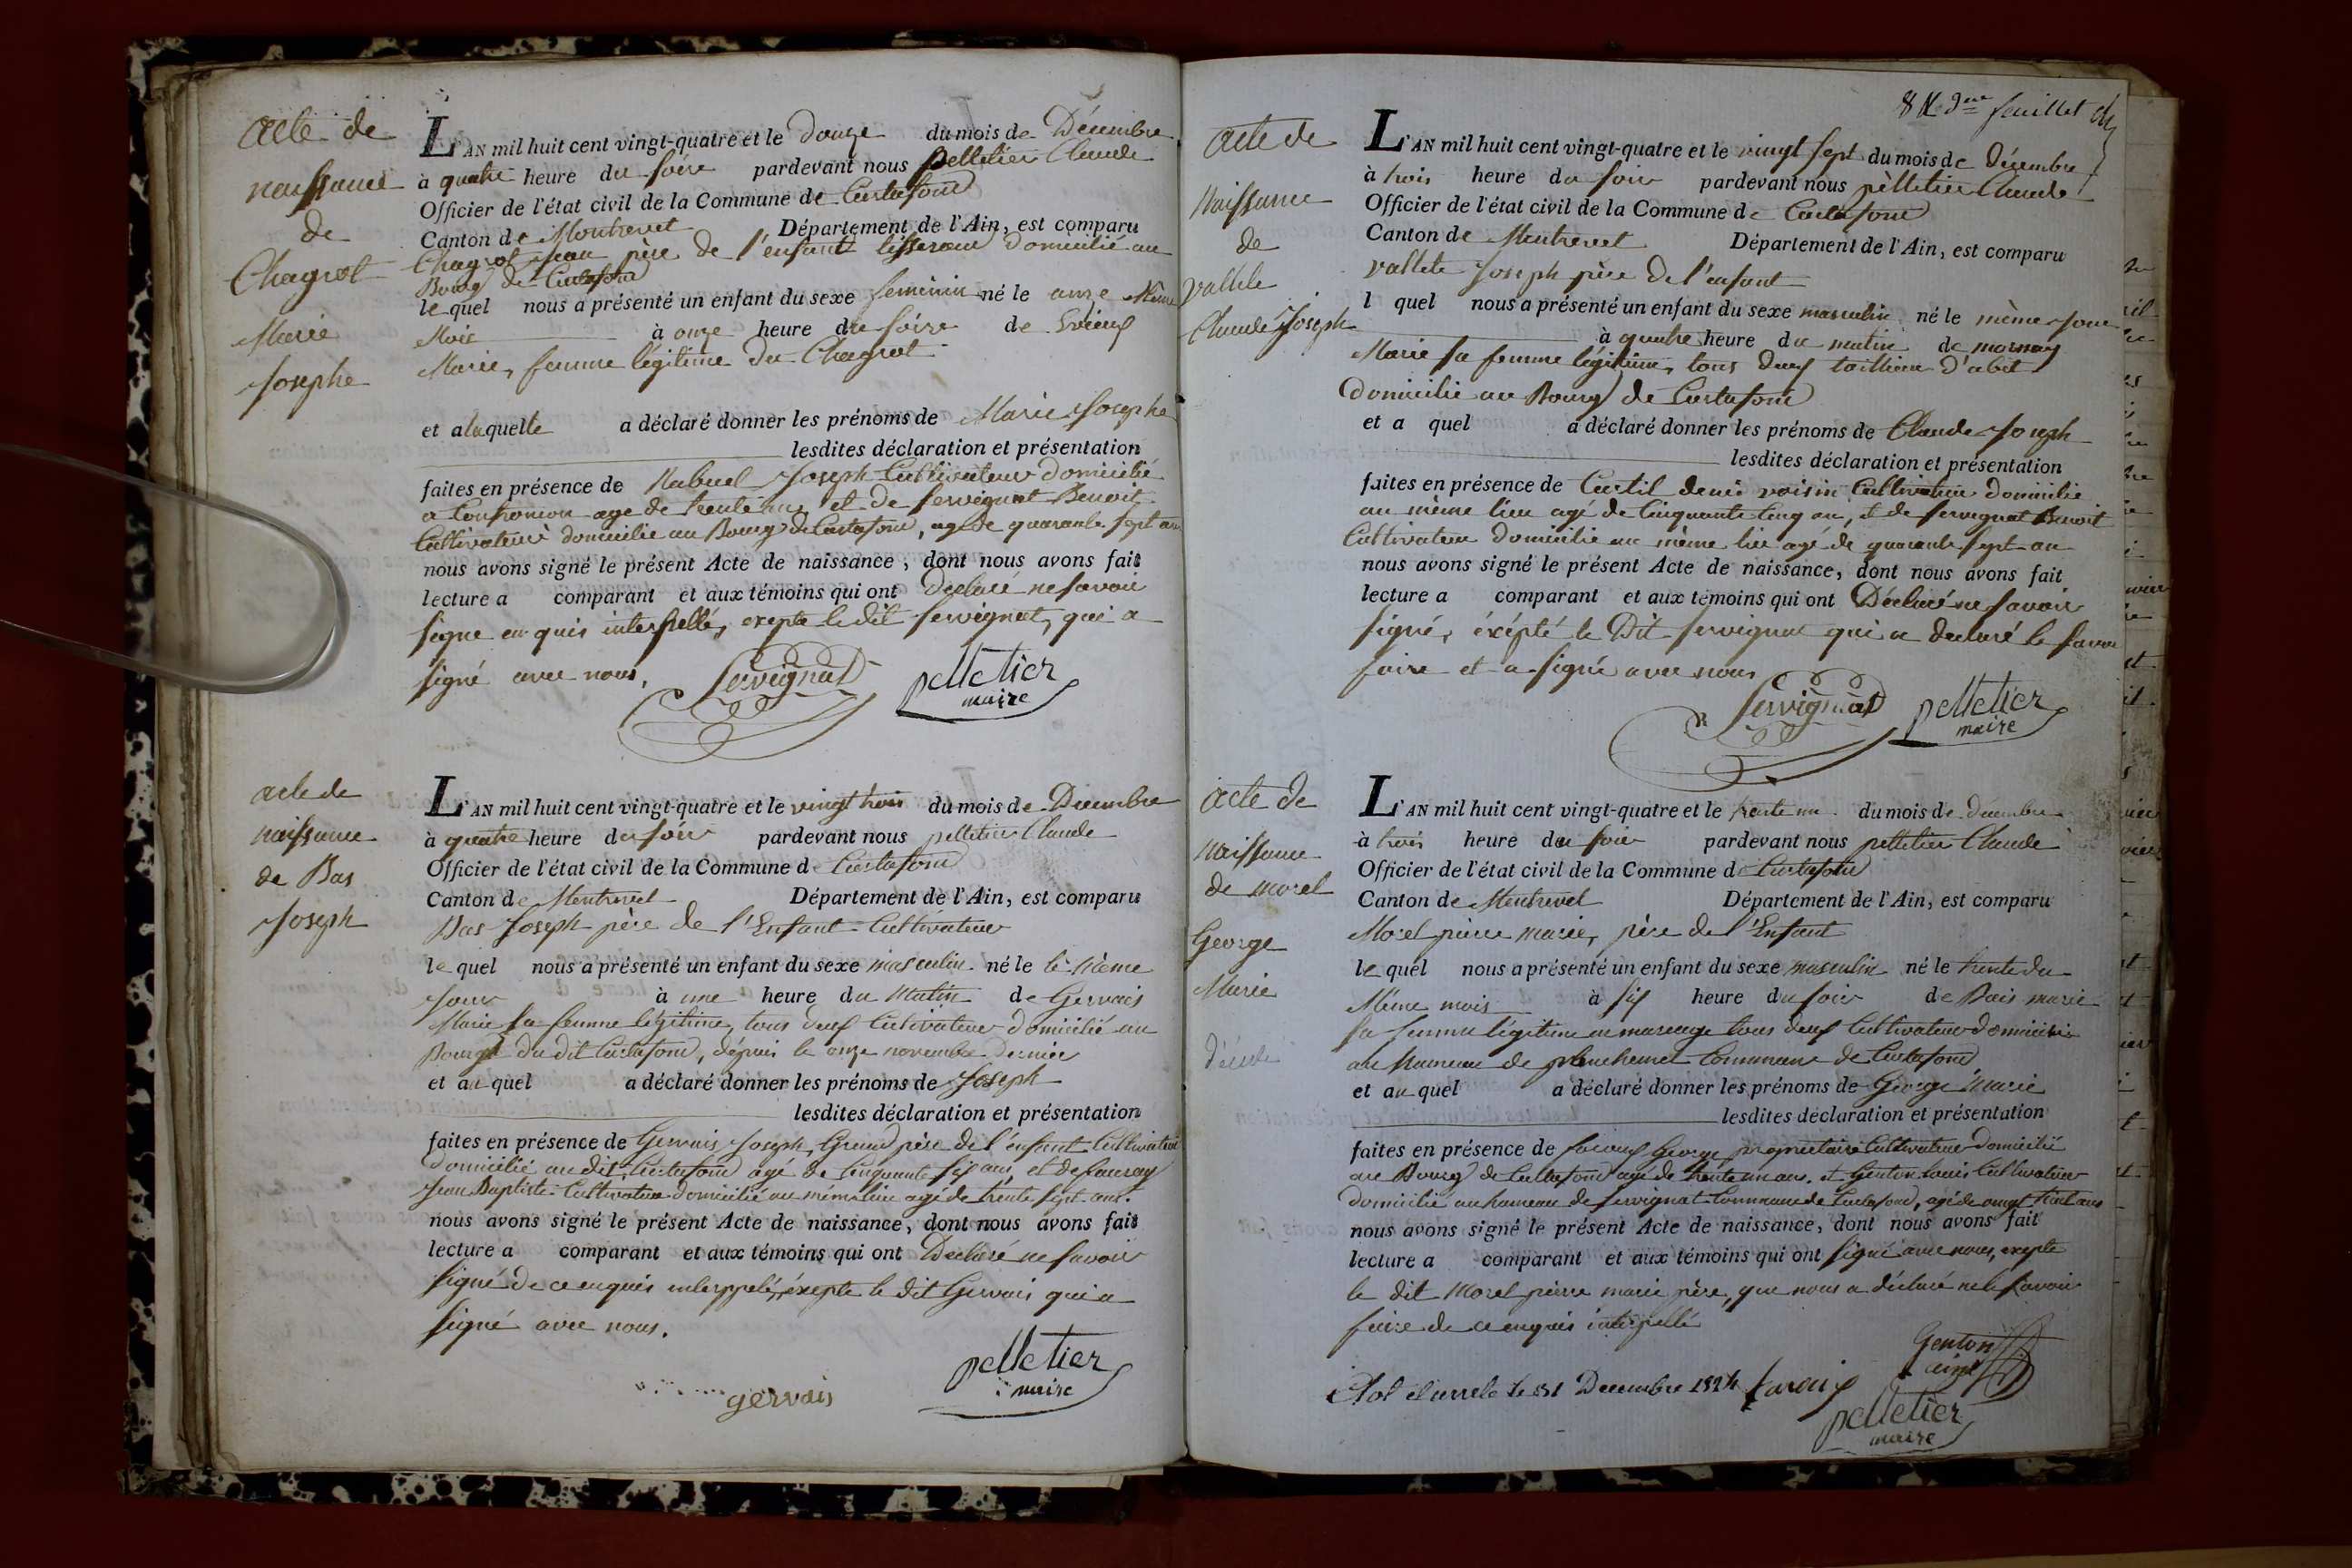 acte de
naissance
de
Chagrot
Marie
Josephe
L'AN mil huit cent vingt-quatre et le douze du mois de Décembre
à quatre heure du soire pardevant nous pelletier Claude
Officier de l'état civil de la Commune de Curtafond
Canton de Montrevel Département de l'Ain, est comparu
Chagrot jean père de l'enfant tisserand domicilié au
Bourg de Curtafond
le quel nous a présenté un enfant du sexe feminin né le onze Même
Mois à onze heure du soire de
Marie, femme légitime du Chagrot
et a laquelle a déclaré donner les prénoms de Marie Josephe
lesdites déclaration et présentation
faites en présence de Joseph Cultivateur domicilié
a Confrançon age de trente et de servignat Benoit
Cultivateur domicilié au Bourg de Curtafond, age de quarante sept an
nous avons signé le présent Acte de naissance, dont nous avons fait
lecture a comparant et aux témoins qui ont Déclaré ne savoir
signe en quis interpellé, exepte le dit servignat, qui a
signé avec nous,
Servignat pelletier
maire
acte de
naissance
de Bas
Joseph
L'AN mil huit cent vingt-quatre et le vingt trois du mois de Decembre
à quatre heure du soir pardevant nous pelletier Claude
Officier de l'état civil de la Commune d Curtafond
Canton de Montrevel Département de l'Ain, est comparu
Bas Joseph père de l'Enfant Cultivateur
le quel nous a présenté un enfant du sexe masculin né le le même
Jour à une heure du Matin de Gervais
Marie sa femme légitime, tous deux Cultivateur domicilié au
Bourg du dit Curtafond, dépuis le onze novembre dernier
et au quel a déclaré donner les prénoms de Joseph
lesdites déclaration et présentation
faites en présence de Gervais Joseph, Grand père de l'enfant Cultivateur
domicilié au dit Curtafond agé de Cinquante six ans, et de
Jean Baptiste Cultivateur domicilié au même lieu agé de trente sept ans.
nous avons signé le présent Acte de naissance, dont nous avons fait
lecture a comparant et aux témoins qui ont Declaré ne savoir
signé de ce enquis interppelé, éxepte le dit Gervais qui a
signé avec nous.
pelletier
maire
gervais
feuillet
acte de
Naissance
de
Vallete
Claude Joseph
L'AN mil huit cent vingt-quatre et le vingt sept du mois de décembre
à trois heure du soir pardevant nous pèlletier Claude
Officier de l'état civil de la Commune de Curtafond
Canton de Montrevel Département de l'Ain, est comparu
Vallete Joseph père de l'enfant
l quel nous a présenté un enfant du sexe masculin né le même Jour
à quatre heure du matin de mornay
Marie sa femme légitime, tous deux tailleur d'abit
domicilié au Bourg de Curtafond
et a quel a déclaré donner les prénoms de Claude Joseph
lesdites déclaration et présentation
faites en présence de Curtil denis voisin Cultivateur domicilié
au même lieu agé de Cinquante Cinq an, et de servignat Benoit
Cultivateur domicilié au même lieu agé de quarante sept an
nous avons signé le présent Acte de naissance, dont nous avons fait
lecture a comparant et aux témoins qui ont Déclaré ne savoir
signé, éxépté le Dit servignat qui a declaré le savoir
faire et a signé avec nous
Servignat pelletier
maire
acte de
Naissance
de Morel
George
Marie
décédé
L'AN mil huit cent vingt-quatre et le trente un du mois de decembre
à trois heure du soir pardevant nous pelletier Claude
Officier de l'état civil de la Commune d Curtafond
Canton de Montrevel Département de l'Ain, est comparu
Morel pierre marie, père de l'Enfant
le quel nous a présenté un enfant du sexe masculin né le trente du
Même mois à six heure du soir de Bais marie
sa femme légitime en mareage tous deux Cultivateur domicilié
au hameau de Commune de Curtafond
et au quel a déclaré donner les prénoms de George Marie
lesdites déclaration et présentation
faites en présence de George proprietaire Cultivateur domicilié
au Bourg de Curtafond agé de trente un ans. et Genton Cultivateur
domicilié au hameau de servignat Commune de Curtafond, agé de vingt ans
nous avons signé le présent Acte de naissance, dont nous avons fait
lecture a comparant et aux témoins qui ont signé avec nous, exepte
le dit Morel pierre marie père, que nous a déclaré ne le savoir
faire de ce enquis interpellé
Genton
ainé
Clot et arrêté le 31 Decembre 1824
pelletier
maire